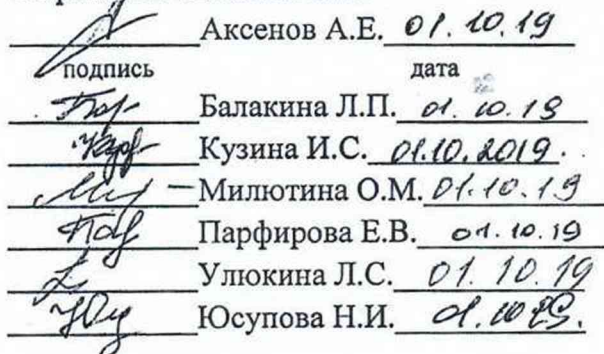 Аксенов А.Е. 01.10.19
подпись дата
Балакина Л.П. 01.10.19
Кузина И.С. 01.10.2019.
Милютина О.М. 01.10.19
Парфирова Е.В. 01.10.19
Улюкина Л.С. 01.10.19
Юсупова Н.И. 01.10.19.